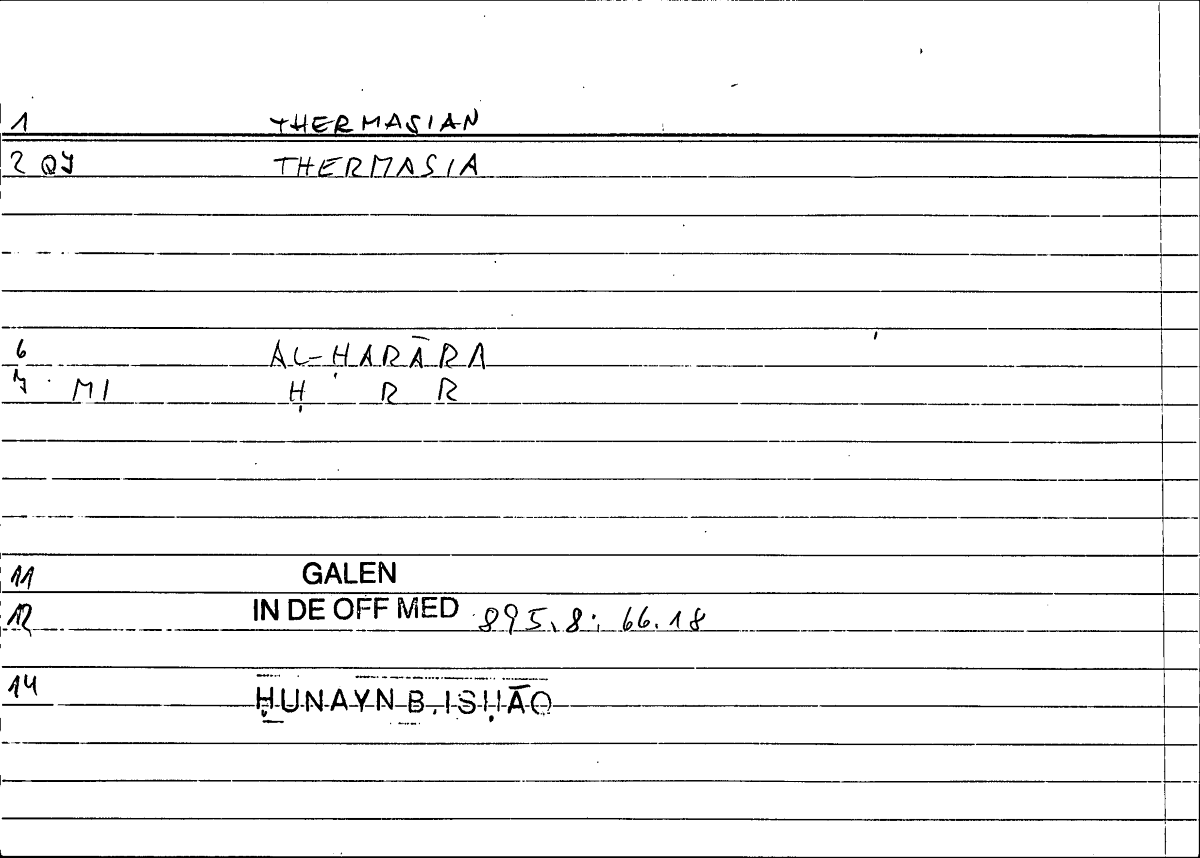 1 THERMASIAN
2 QJ THERMASIA
6 AL-ḤARĀRA
7 MI Ḥ R R
11 GALEN
12 IN DE OFF MED 895.8; 66.18
14 ḤUNAYN B. ISḤĀQ